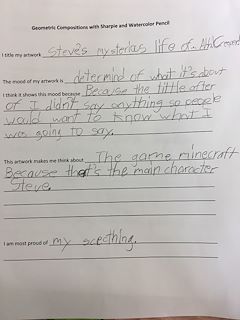 Geometric Compositions with Sharpie and Watercolor Pencil
I title my artwork Steve's mysterius life of.
The mood of my artwork is determind of what it's about
I think it shows this mood because Because the tittle after
of I didn't say anything so people
would want to know what I
was going to say.
This artwork makes me think about The game minecraft
Because that's the main character
Steve.
I am most proud of my scecthing.